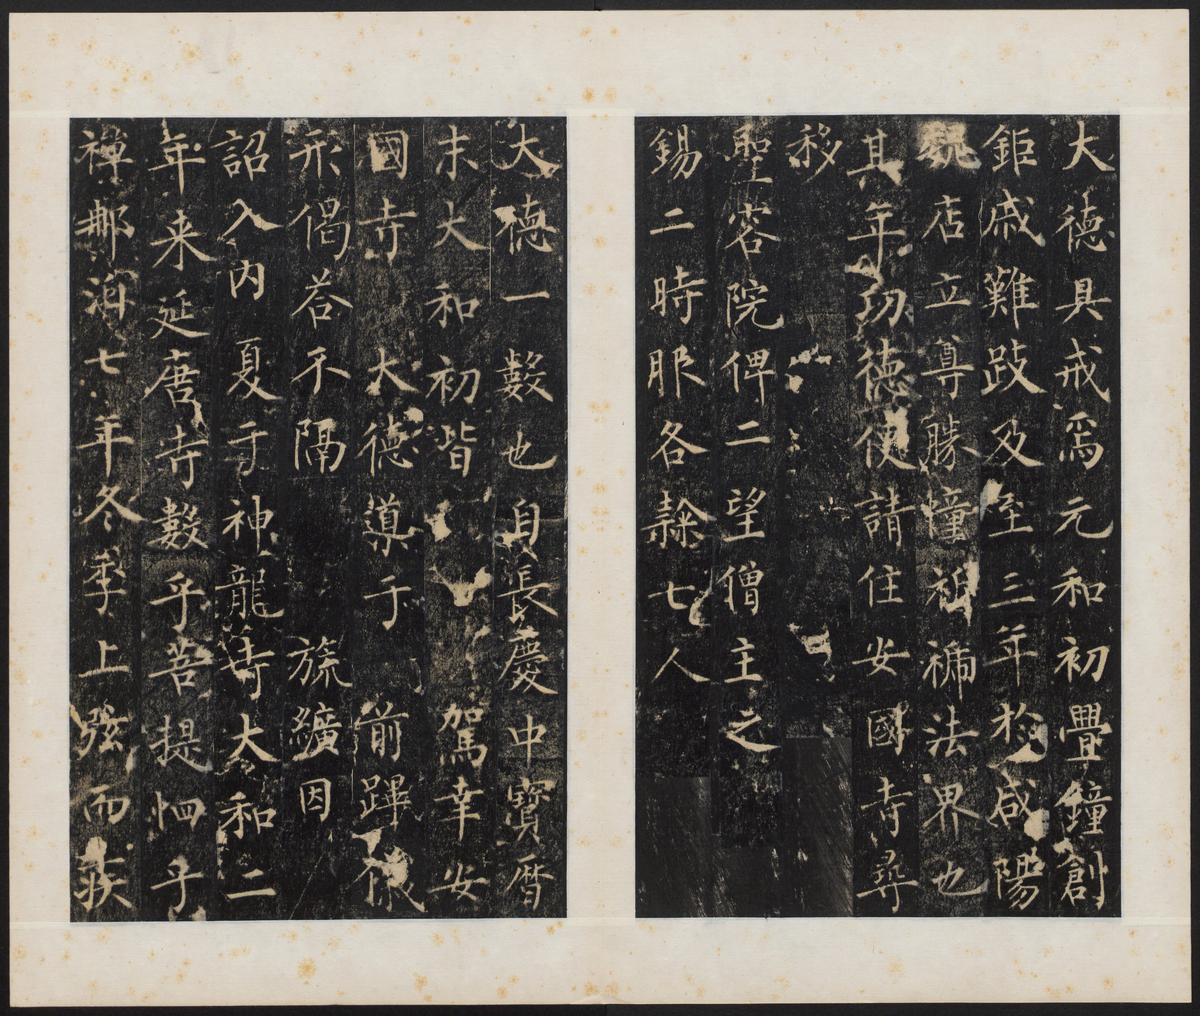 大德具戒焉元和初疊鐘創
鉅戚難跂及至三年於咸陽
魏店立尊勝幢祇禘法界也
其年功德使請住安國寺尋
移
聖容院俾二望僧主之
錫二時服各隸七人
大德一數也自長慶中寶曆
末大和初皆駕幸安
國寺大德導于前蹕
形偈荅不隔旒纊因
詔入內夏于神龍寺大和二
年来延唐寺數乎菩提恤乎
禅那洎七年冬季上弦而疾